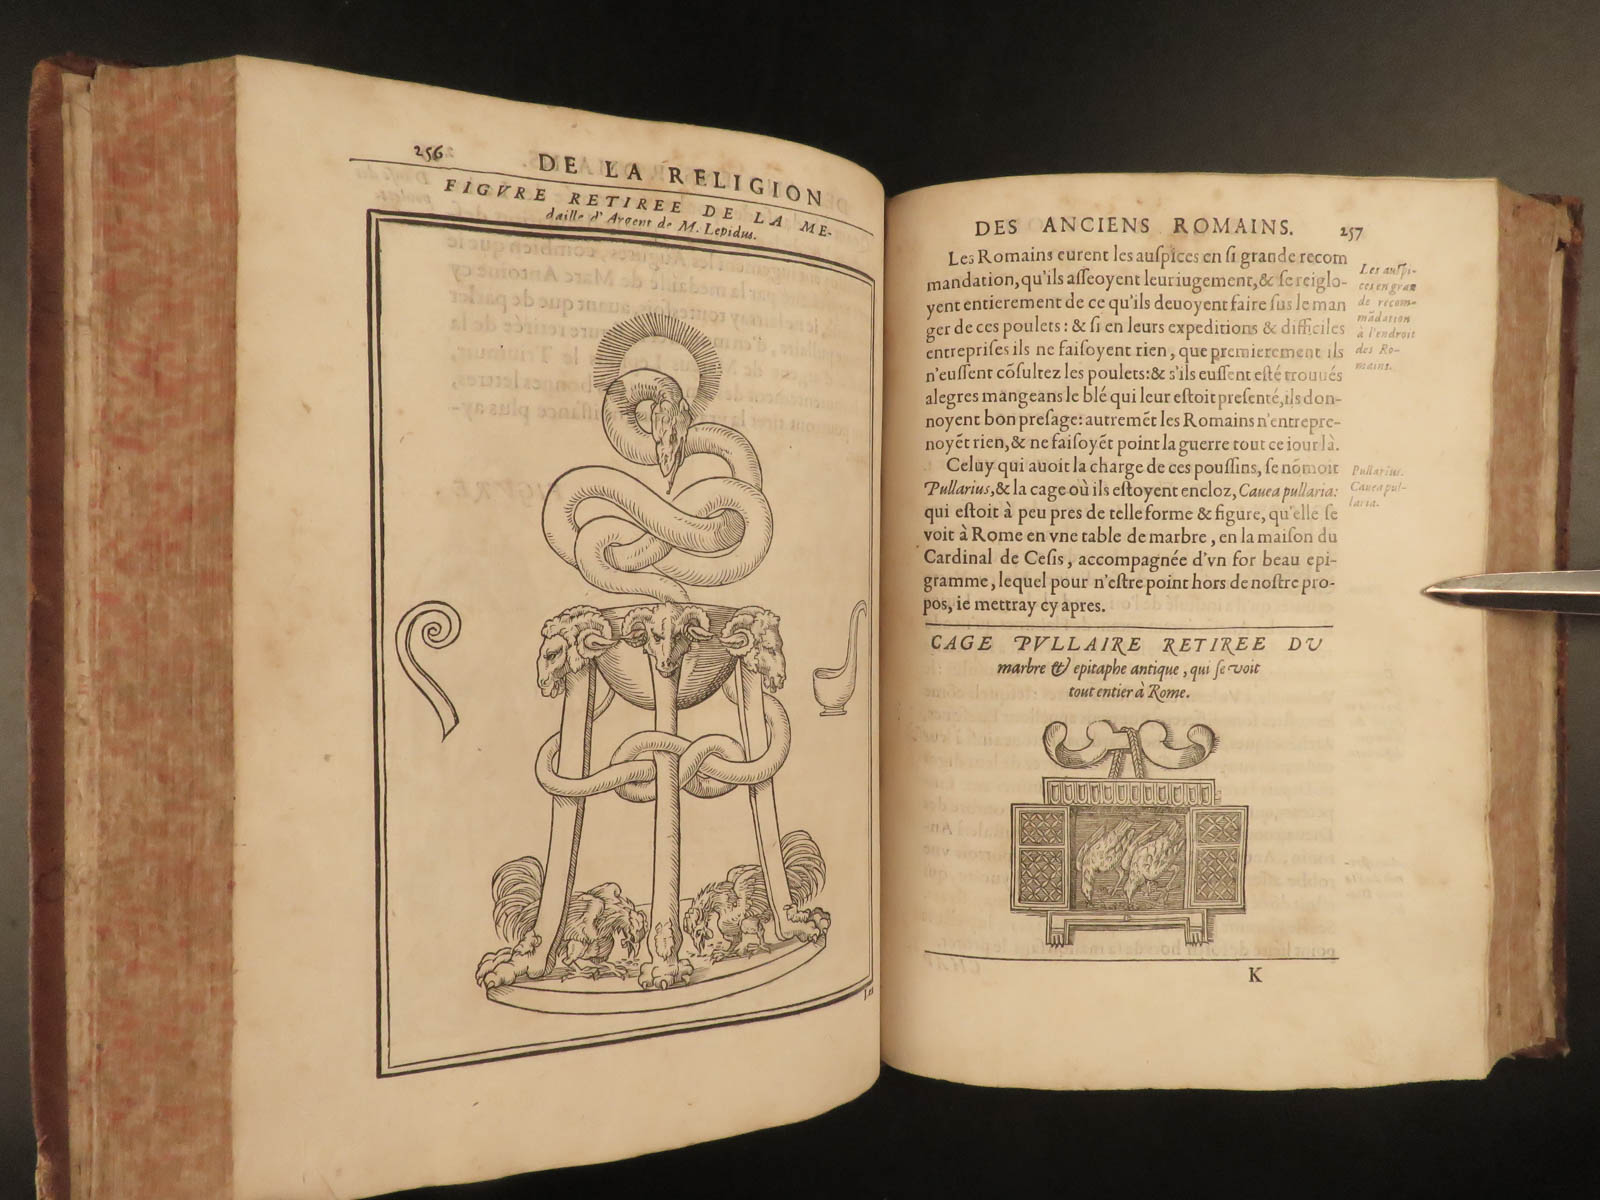 256
DE LA RELIGION
FIGVRE RETIREE DE LA ME-
daille d'Argent de M. Lepidus.
Les
DES ANCIENS ROMAINS. 257
Les Romains eurent les auſpices en ſi grande recom
mandation, qu'ils aſſeoyent leur iugement, & ſe reiglo-
yent entierement de ce qu'ils deuoyent faire ſus le man
ger de ces poulets : & ſi en leurs expeditions & difficiles
entrepriſes ils ne faiſoyent rien, que premierement ils
n'euſſent cõſultez les poulets: & s'ils euſſent eſté trouués
alegres mangeans le blé qui leur eſtoit preſenté, ils don-
noyent bon preſage: autremẽt les Romains n'entrepre-
noyẽt rien, & ne faiſoyẽt point la guerre tout ce iour là.
Celuy qui auoit la charge de ces pouſſins, ſe nõmoit
Pullarius, & la cage où ils eſtoyent encloz, Cauea pullaria:
qui eſtoit à peu pres de telle forme & figure, qu'elle ſe
voit à Rome en vne table de marbre, en la maiſon du
Cardinal de Ceſis, accompagnée d'vn for beau epi-
gramme, lequel pour n'eſtre point hors de noſtre pro-
pos, ie mettray cy apres.
Les auſpi-
ces en gran
de recom-
mãdation
à l'endroit
des Ro-
mains.
Pullarius.
Cauea pul-
laria.
CAGE PVLLAIRE RETIREE DV
marbre & epitaphe antique, qui ſe voit
tout entier à Rome.
K